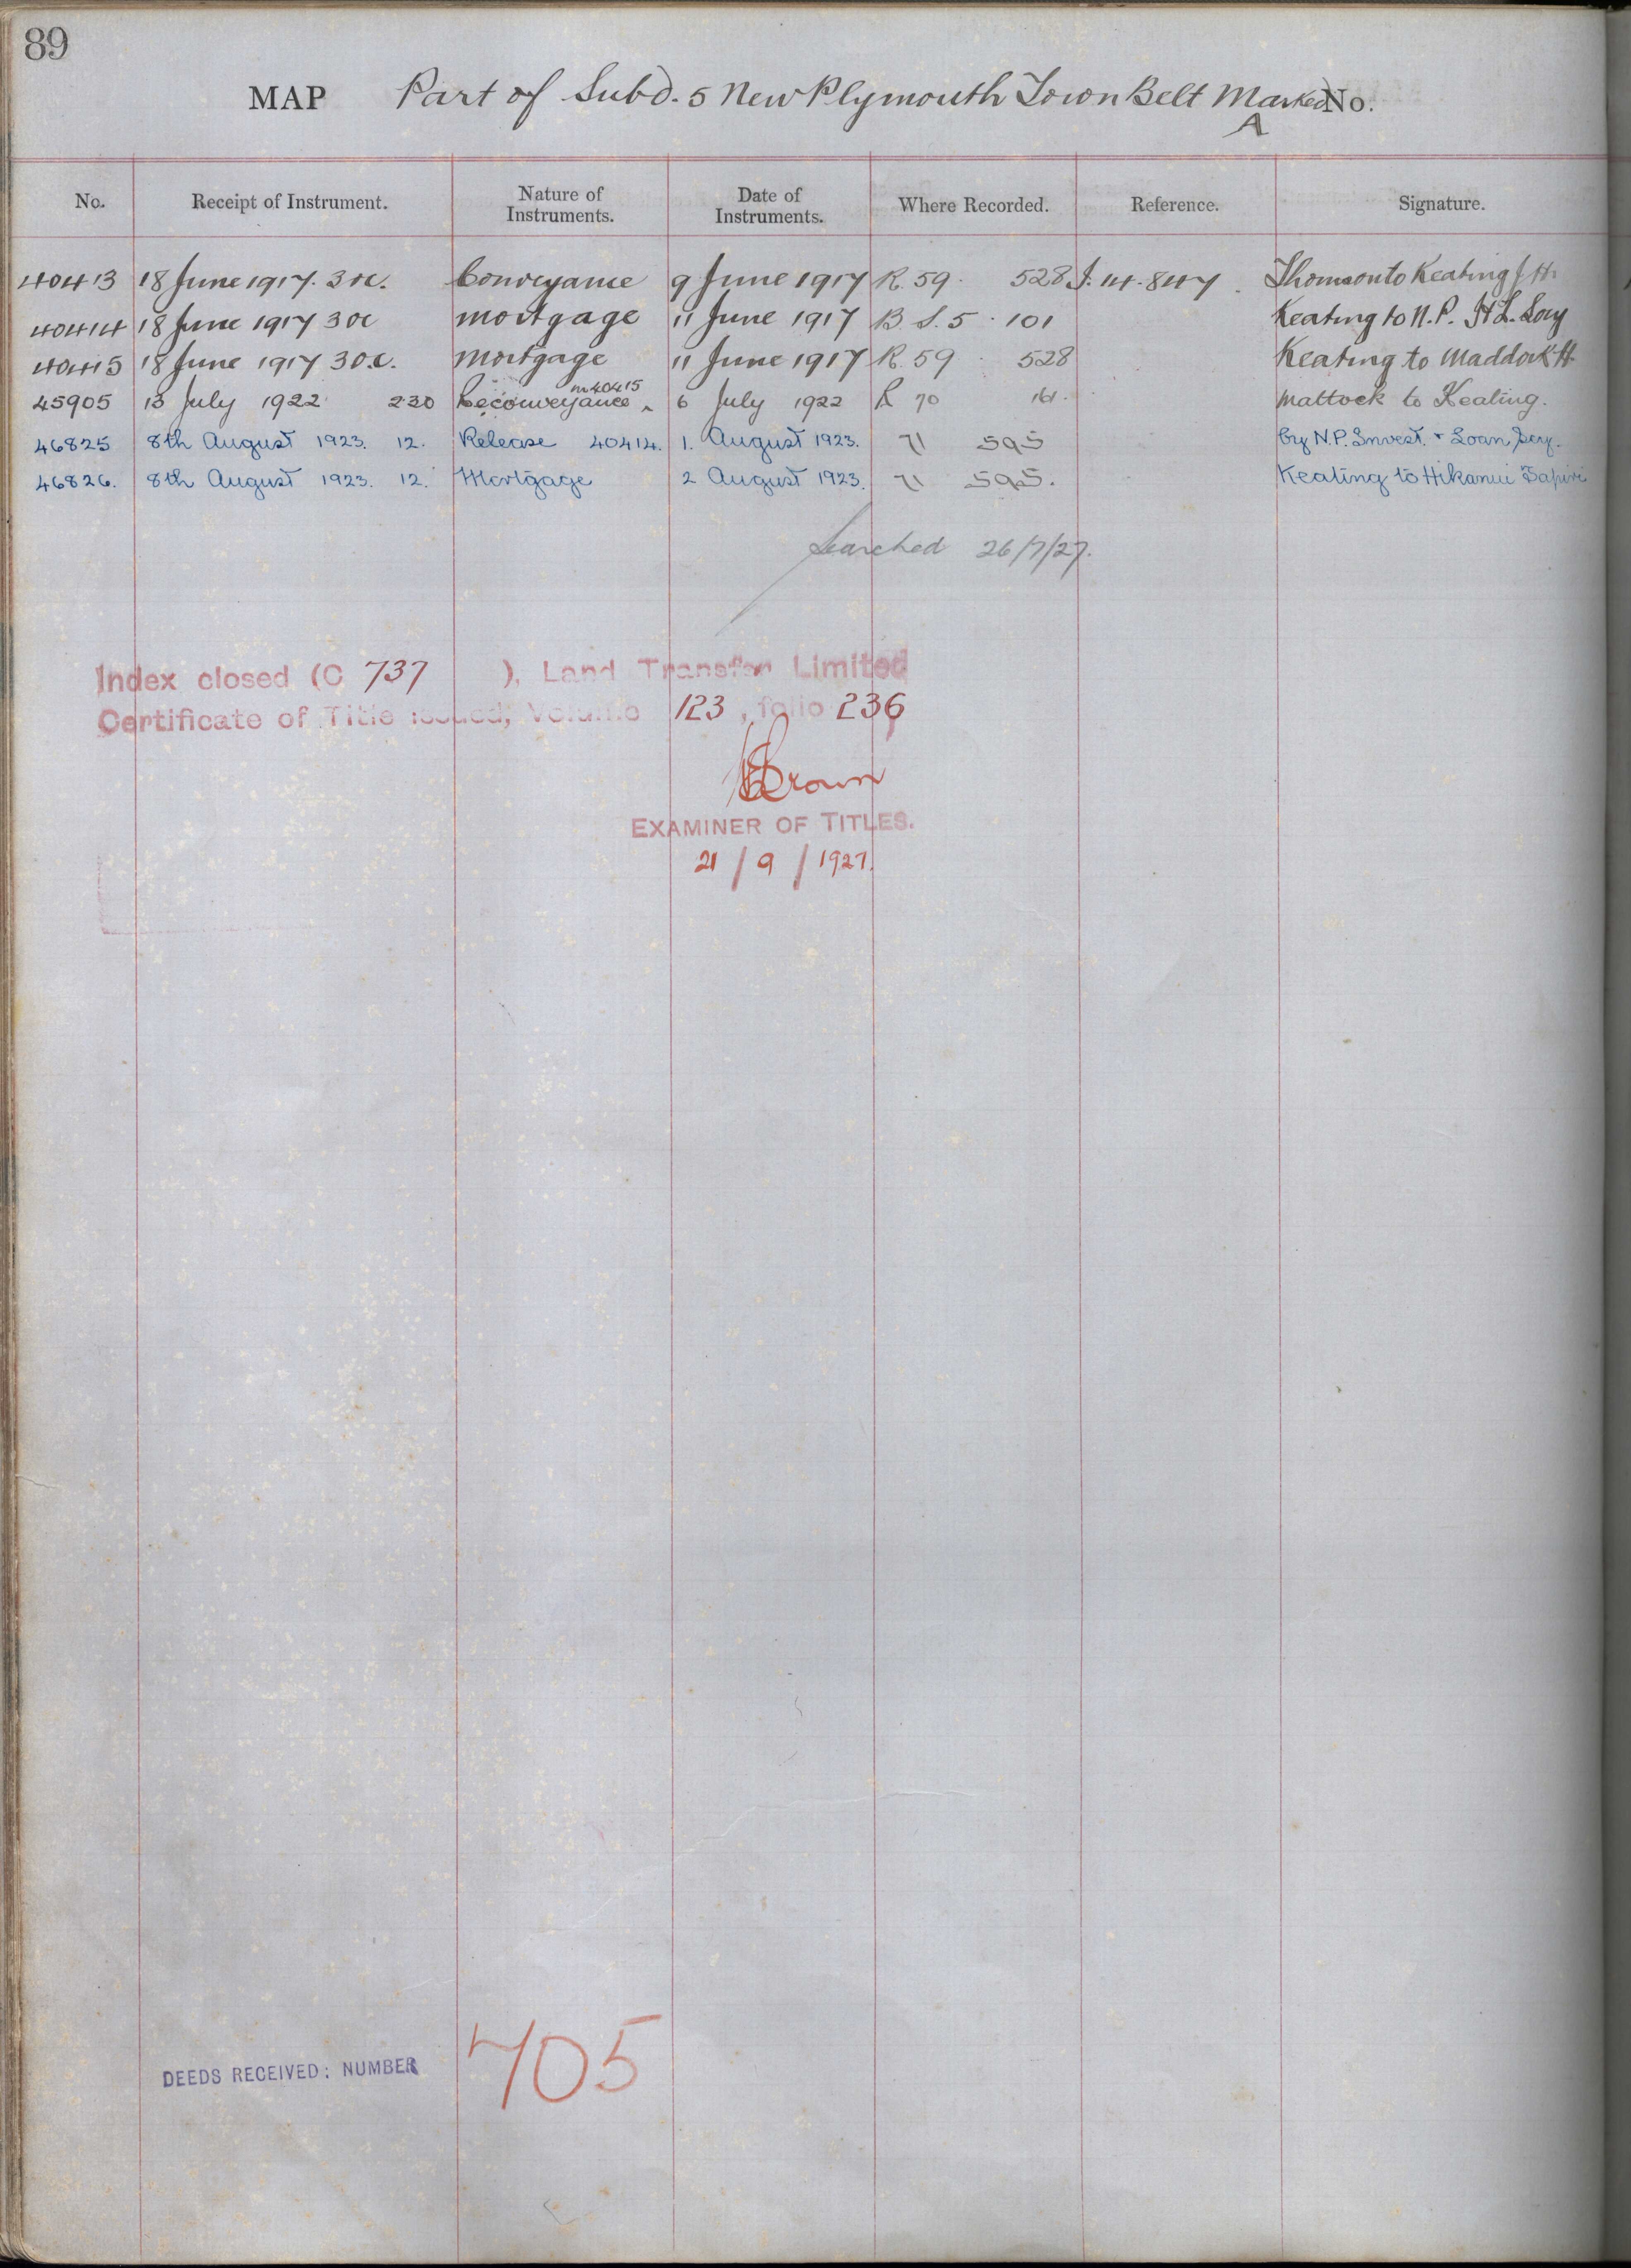 89
MAP Part of Subd. 5 New Plymouth Town Belt Marked No.
A
No. Receipt of Instrument. Nature of Instruments. Date of Instruments. Where Recorded. Reference. Signature.
40413 18 June 1917. 3 oc. Conveyance 9 June 1917 R. 59. 528 I. 14. 847. Thomson to Keating
40414 18 June 1917 3 oc Mortgage 11 June 1917 B. S. 5. 101 Keating to N.P.
40415 18 June 1917 3 o.c. Mortgage 11 June 1917 R. 59. 528 Keating to Maddock
m 40415
45905 13 July 1922 2 30 Reconveyance 6 July 1922 R 70 161. Mattock to Keating.
46825 8th August 1923. 12. Release 40414. 1. August 1923. 71 595 by N.P. Invest. & Loan Socy.
46826. 8th August 1923. 12. Mortgage 2 August 1923. 71 595. Keating to Hikanui
Searched 26/7/27.
Index closed (C 737 ), Land Transfer Limited
Certificate of Title issued, Volume 123, folio 236
Brown
EXAMINER OF TITLES.
21 / 9 / 1927.
DEEDS RECEIVED: NUMBER 705